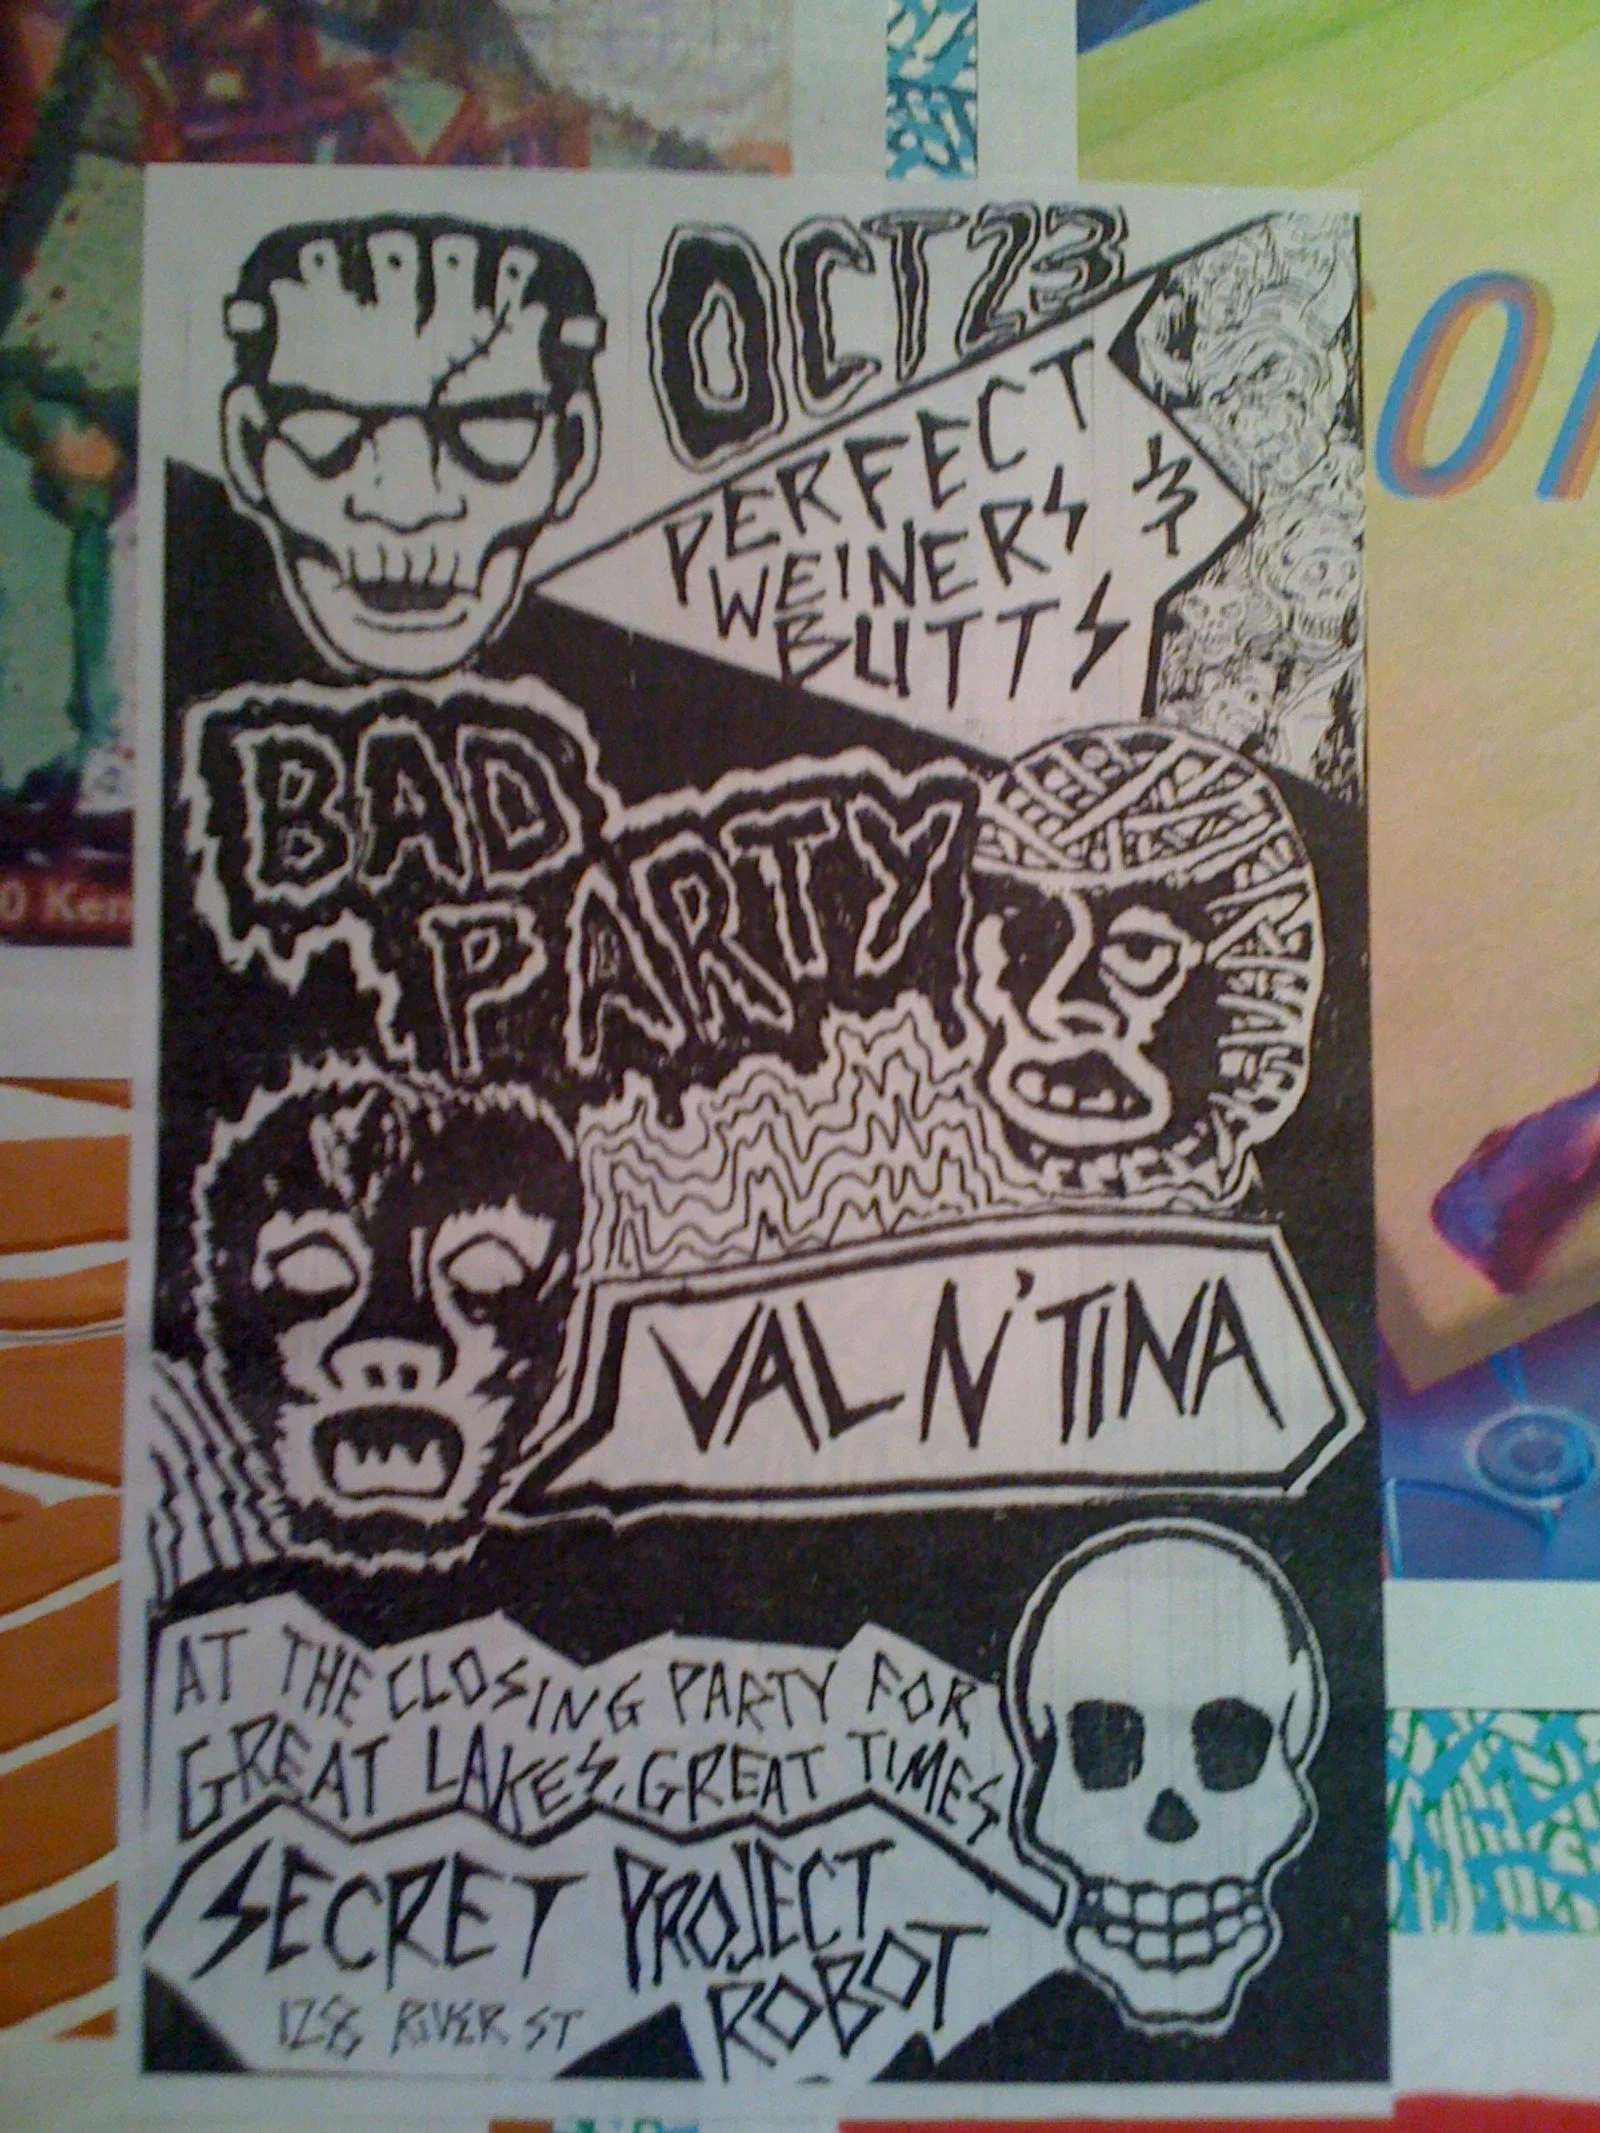 OCT 23
PERFECT
WEINERS &
BUTTS
BAD
PARTY
VAL N' TINA
AT THE CLOSING PARTY FOR
GREAT LAKES, GREAT TIMES
SECRET PROJECT
ROBOT
128 RIVER ST
0 Ken